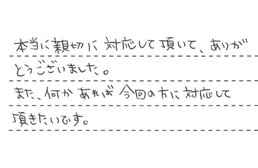 本当に親切に対応して頂いて、ありが
とうございました。
また、何かあれば今回の方に対応して
頂きたいです。